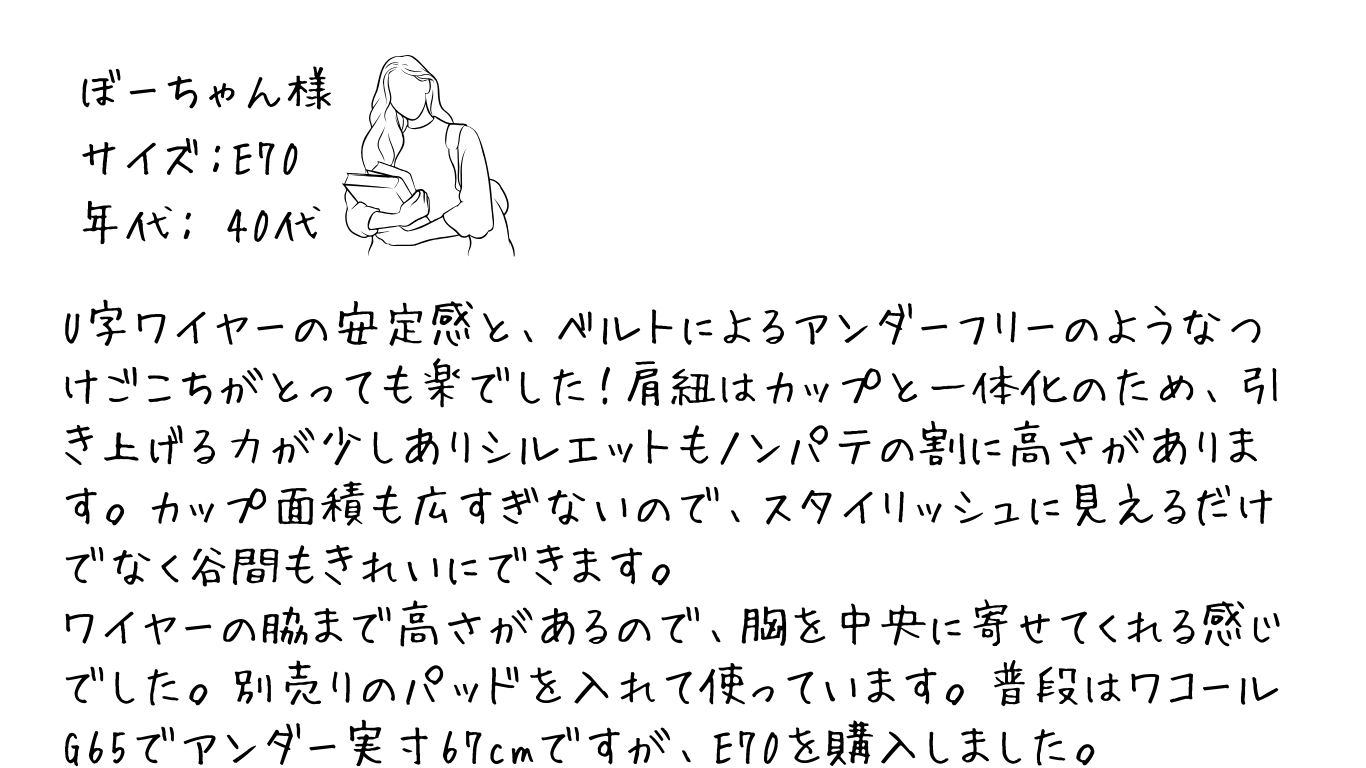 ぼーちゃん様
サイズ:E70
年代: 40代
U字ワイヤーの安定感と、ベルトによるアンダーフリーのようなつ
けごこちがとっても楽でした!肩紐はカップと一体化のため、引
き上げる力が少しありシルエットもノンパテの割に高さがありま
す。カップ面積も広すぎないので、スタイリッシュに見えるだけ
でなく谷間もきれいにできます。
ワイヤーの脇まで高さがあるので、胸を中央に寄せてくれる感じ
でした。別売りのパッドを入れて使っています。普段はワコール
G65でアンダー実寸67cmですが、E70を購入しました。